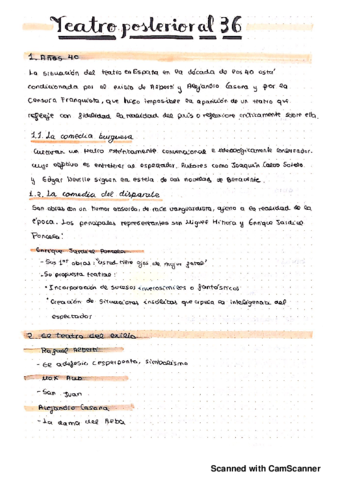 Teatro posterior al 36
1. AÑOS 40
La situación del teatro en España en la década de los 40 está
condicionada por el exilio de Alberti y Alejandro Casona y por la
Censura Franquista, que hizo imposible la aparición de un teatro que
refleje con fidelidad la realidad del país o reflexione críticamente sobre ella.
1.1. La comedia burguesa
Cultivaron un teatro convencional e ideológicamente conservador.
cuyo objetivo es entretener al espectador. Autores como Joaquín Calvo Sotelo
y Edgar Neville siguen la estela de Benavente.
1.2. La comedia del disparate
Son obras con un humor absurdo, de raíz vanguardista, ajeno a la realidad de la
época. Los principales representantes son Miguel Mihura y Enrique Jardiel
Poncela:
Enrique Jardiel Poncela:
- Sus 1ª obras: "Usted tiene ojos de mujer fatal"
- Su propuesta teatral:
• Incorporación de sucesos inverosímiles o fantásticos
• Creación de situaciones insólitas que apela la inteligencia del
espectador
2. El teatro del exilio
Rafael Alberti:
- El adefesio (esperpento, simbolismo
Max Aub:
- San Juan
Alejandro Casona
- La dama del Alba
Scanned with CamScanner